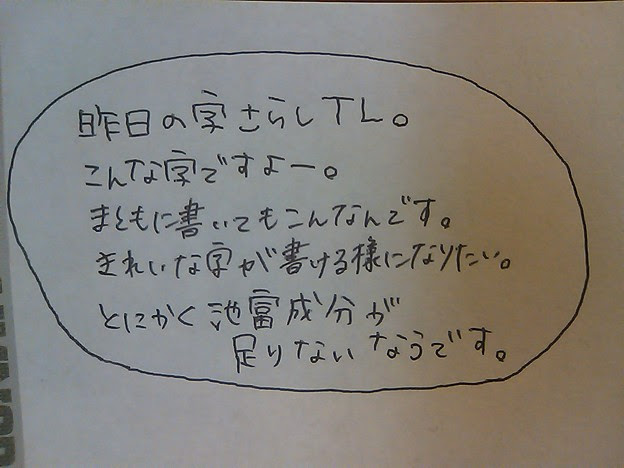 昨日の字さらしTL。
こんな字ですよー。
まともに書いてもこんなんです。
きれいな字が書ける様になりたい。
とにかく池富成分が
足りないなうです。